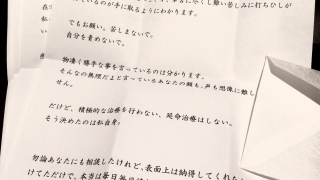 難い苦しみに打ちひしが
ているのが手に取るようにわかります。
でもお願い。苦しまないで。
自分を責めないで。
物凄く勝手な事を言っているのは分かります。
そんなの無理だよと言っているあなたの顔も、声も想像に難し
せん。
だけど、積極的な治療を行わない、延命治療はしない。
そう決めたのは私自身。
勿論あなたにも相談したけれど、表面上は納得してくれた
けてただけで、本当は毎日毎